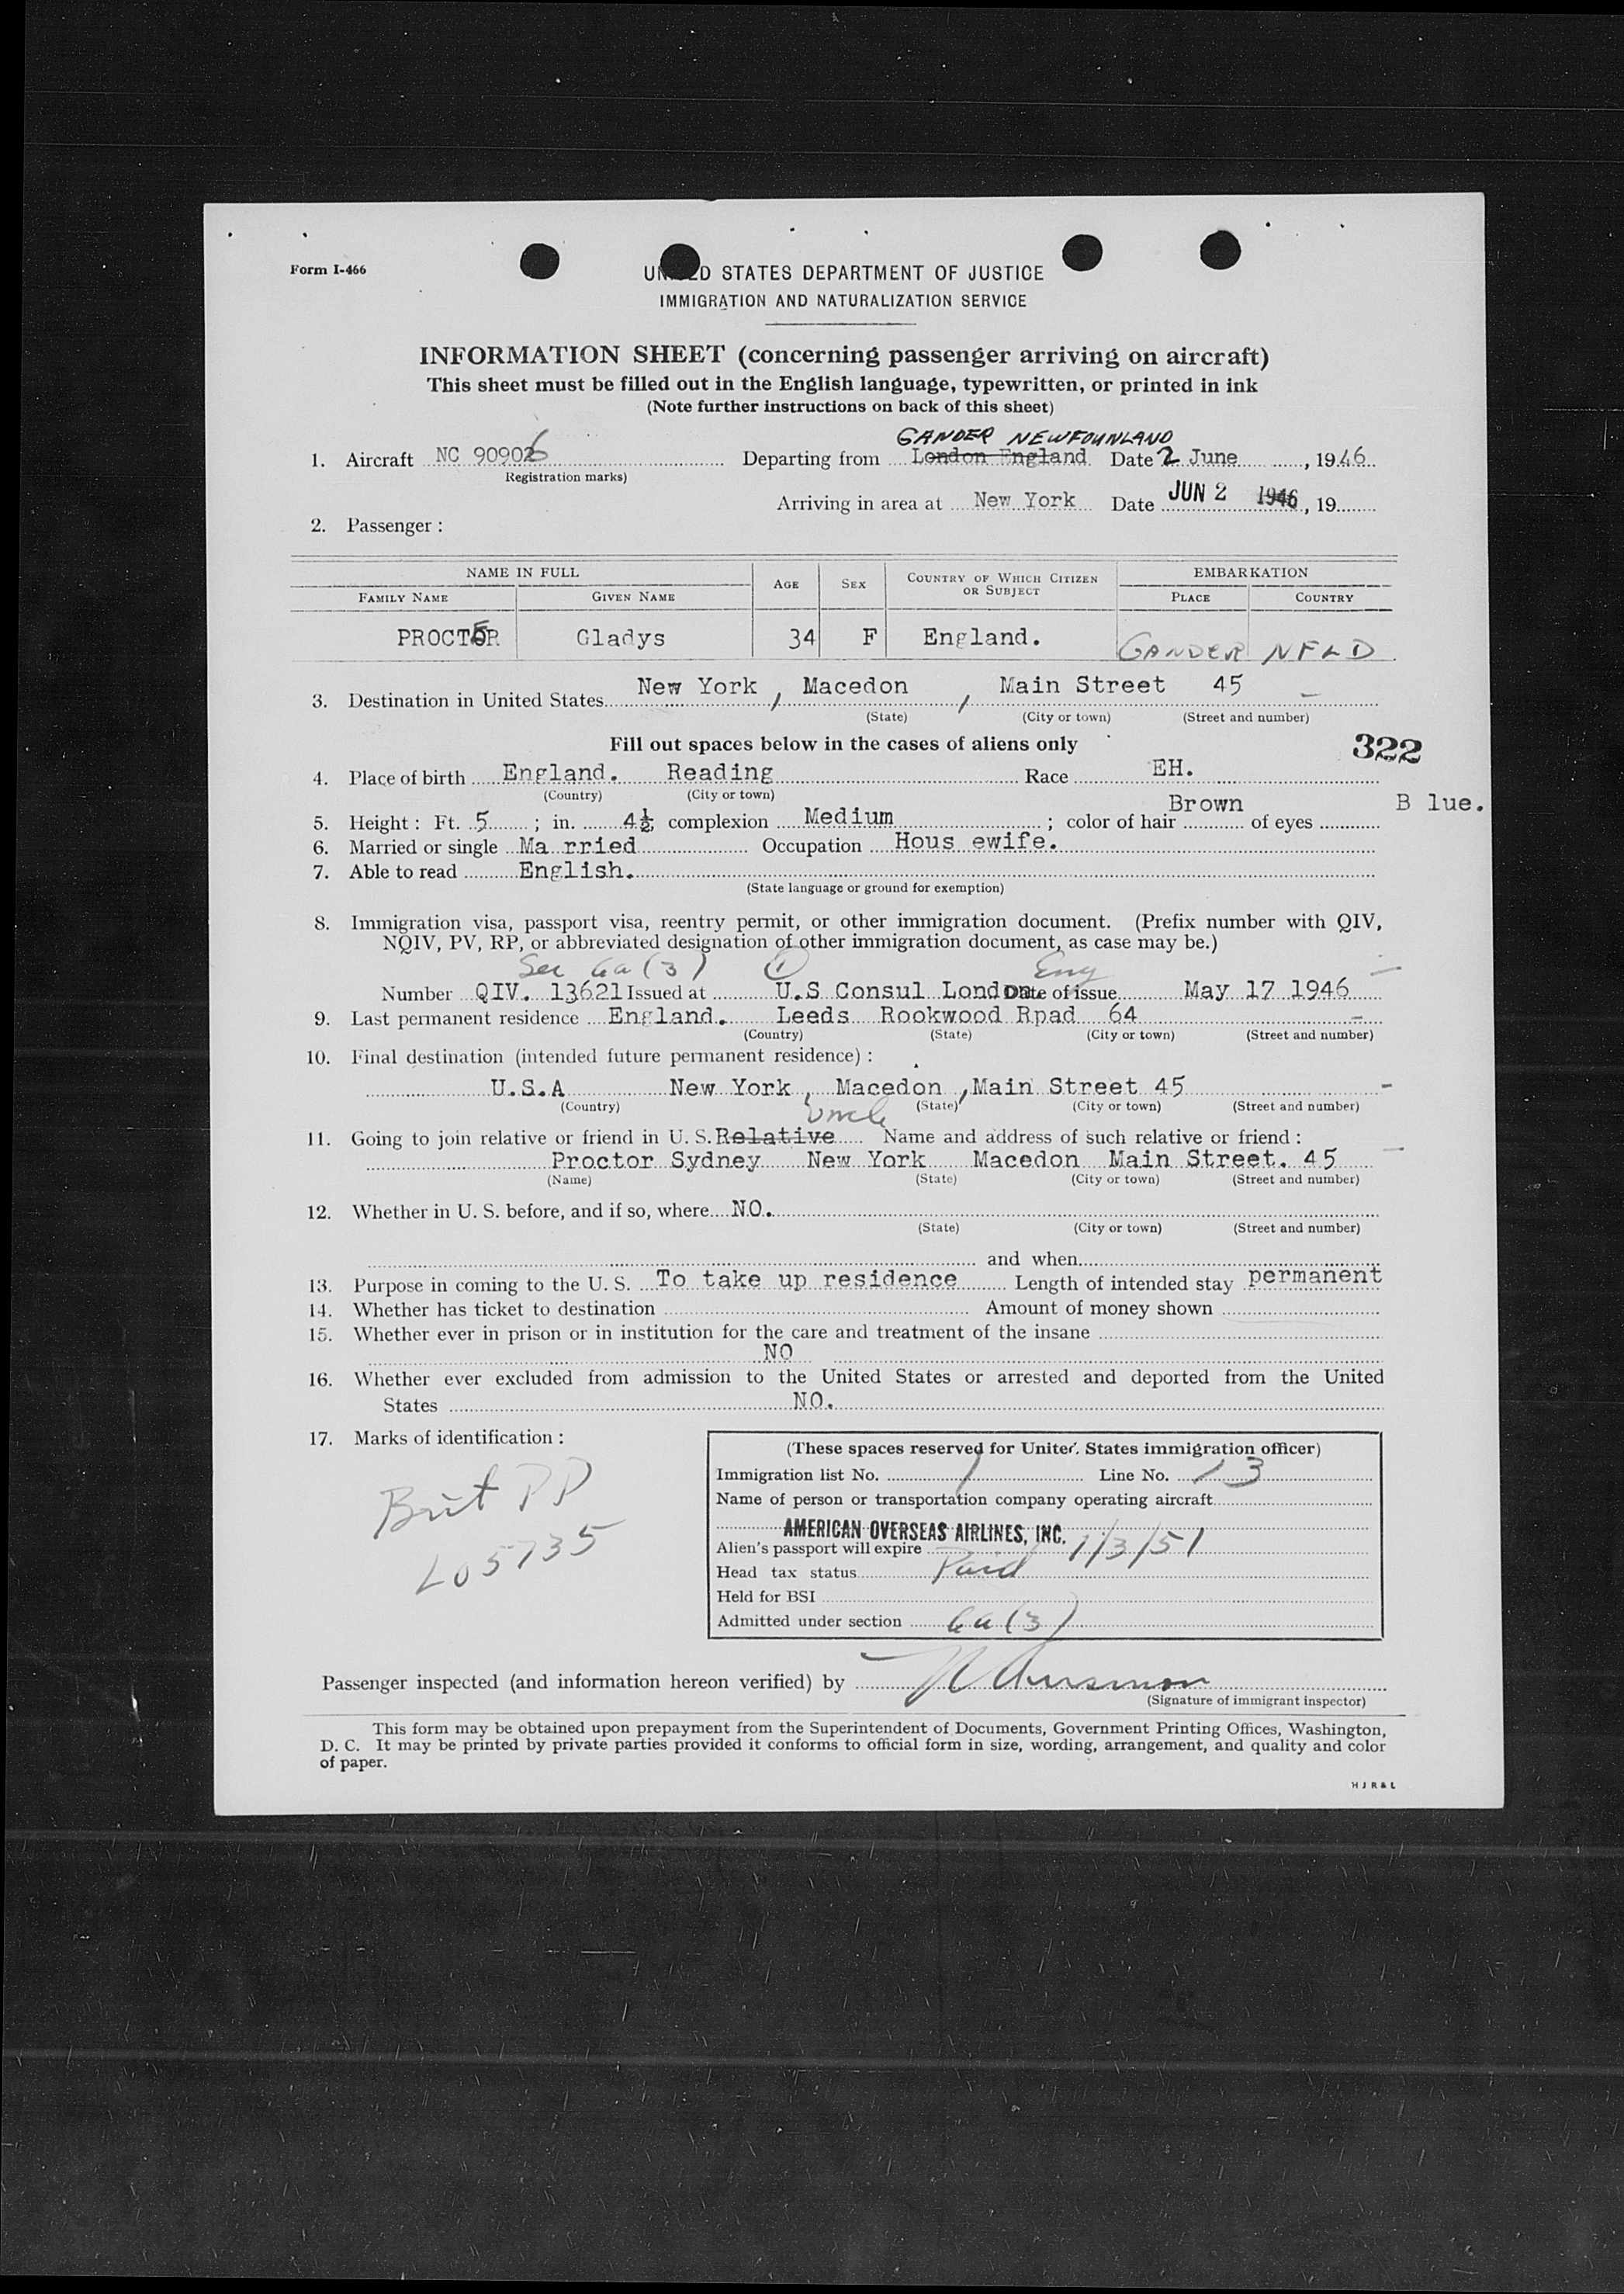 Form I-466
UNITED STATES DEPARTMENT OF JUSTICE
IMMIGRATION AND NATURALIZATION SERVICE
INFORMATION SHEET (concerning passenger arriving on aircraft)
This sheet must be filled out in the English language, typewritten, or printed in ink
(Note further instructions on back of this sheet)
GANDER NEWFOUNLAND
1. Aircraft NC 90906 Departing from London England Date 2 June, 1946
(Registration marks)
Arriving in area at New York Date JUN 2 1946, 19
2. Passenger:
NAME IN FULL AGE SEX COUNTRY OF WHICH CITIZEN OR SUBJECT EMBARKATION
FAMILY NAME GIVEN NAME PLACE COUNTRY
PROCTER Gladys 34 F England. GANDER NFLD
3. Destination in United States New York, Macedon, Main Street 45
(State) (City or town) (Street and number)
Fill out spaces below in the cases of aliens only
322
4. Place of birth England. Reading Race EH.
(Country) (City or town)
5. Height: Ft. 5; in. 4½; complexion Medium; color of hair Brown of eyes B lue.
6. Married or single Ma rried Occupation Hous ewife.
7. Able to read English.
(State language or ground for exemption)
8. Immigration visa, passport visa, reentry permit, or other immigration document. (Prefix number with QIV,
NQIV, PV, RP, or abbreviated designation of other immigration document, as case may be.)
Sec 6a(3) 1 Eng
Number QIV. 13621 Issued at U.S Consul London Date of issue May 17 1946
9. Last permanent residence England. Leeds Rookwood Rpad 64
(Country) (State) (City or town) (Street and number)
10. Final destination (intended future permanent residence):
U.S.A New York, Macedon, Main Street 45
(Country) (State) (City or town) (Street and number)
Uncle
11. Going to join relative or friend in U. S. Relative Name and address of such relative or friend:
Proctor Sydney New York Macedon Main Street. 45
(Name) (State) (City or town) (Street and number)
12. Whether in U. S. before, and if so, where NO.
(State) (City or town) (Street and number)
and when
13. Purpose in coming to the U. S. To take up residence Length of intended stay permanent
14. Whether has ticket to destination Amount of money shown
15. Whether ever in prison or in institution for the care and treatment of the insane
NO
16. Whether ever excluded from admission to the United States or arrested and deported from the United
States NO.
17. Marks of identification:
Brit PP
L05735
(These spaces reserved for United States immigration officer)
Immigration list No. 1 Line No. 13
Name of person or transportation company operating aircraft
AMERICAN OVERSEAS AIRLINES, INC.
Alien's passport will expire 1/3/51
Head tax status Paid
Held for BSI
Admitted under section 6a(3)
Passenger inspected (and information hereon verified) by
(Signature of immigrant inspector)
This form may be obtained upon prepayment from the Superintendent of Documents, Government Printing Offices, Washington,
D. C. It may be printed by private parties provided it conforms to official form in size, wording, arrangement, and quality and color
of paper.
H J R & L